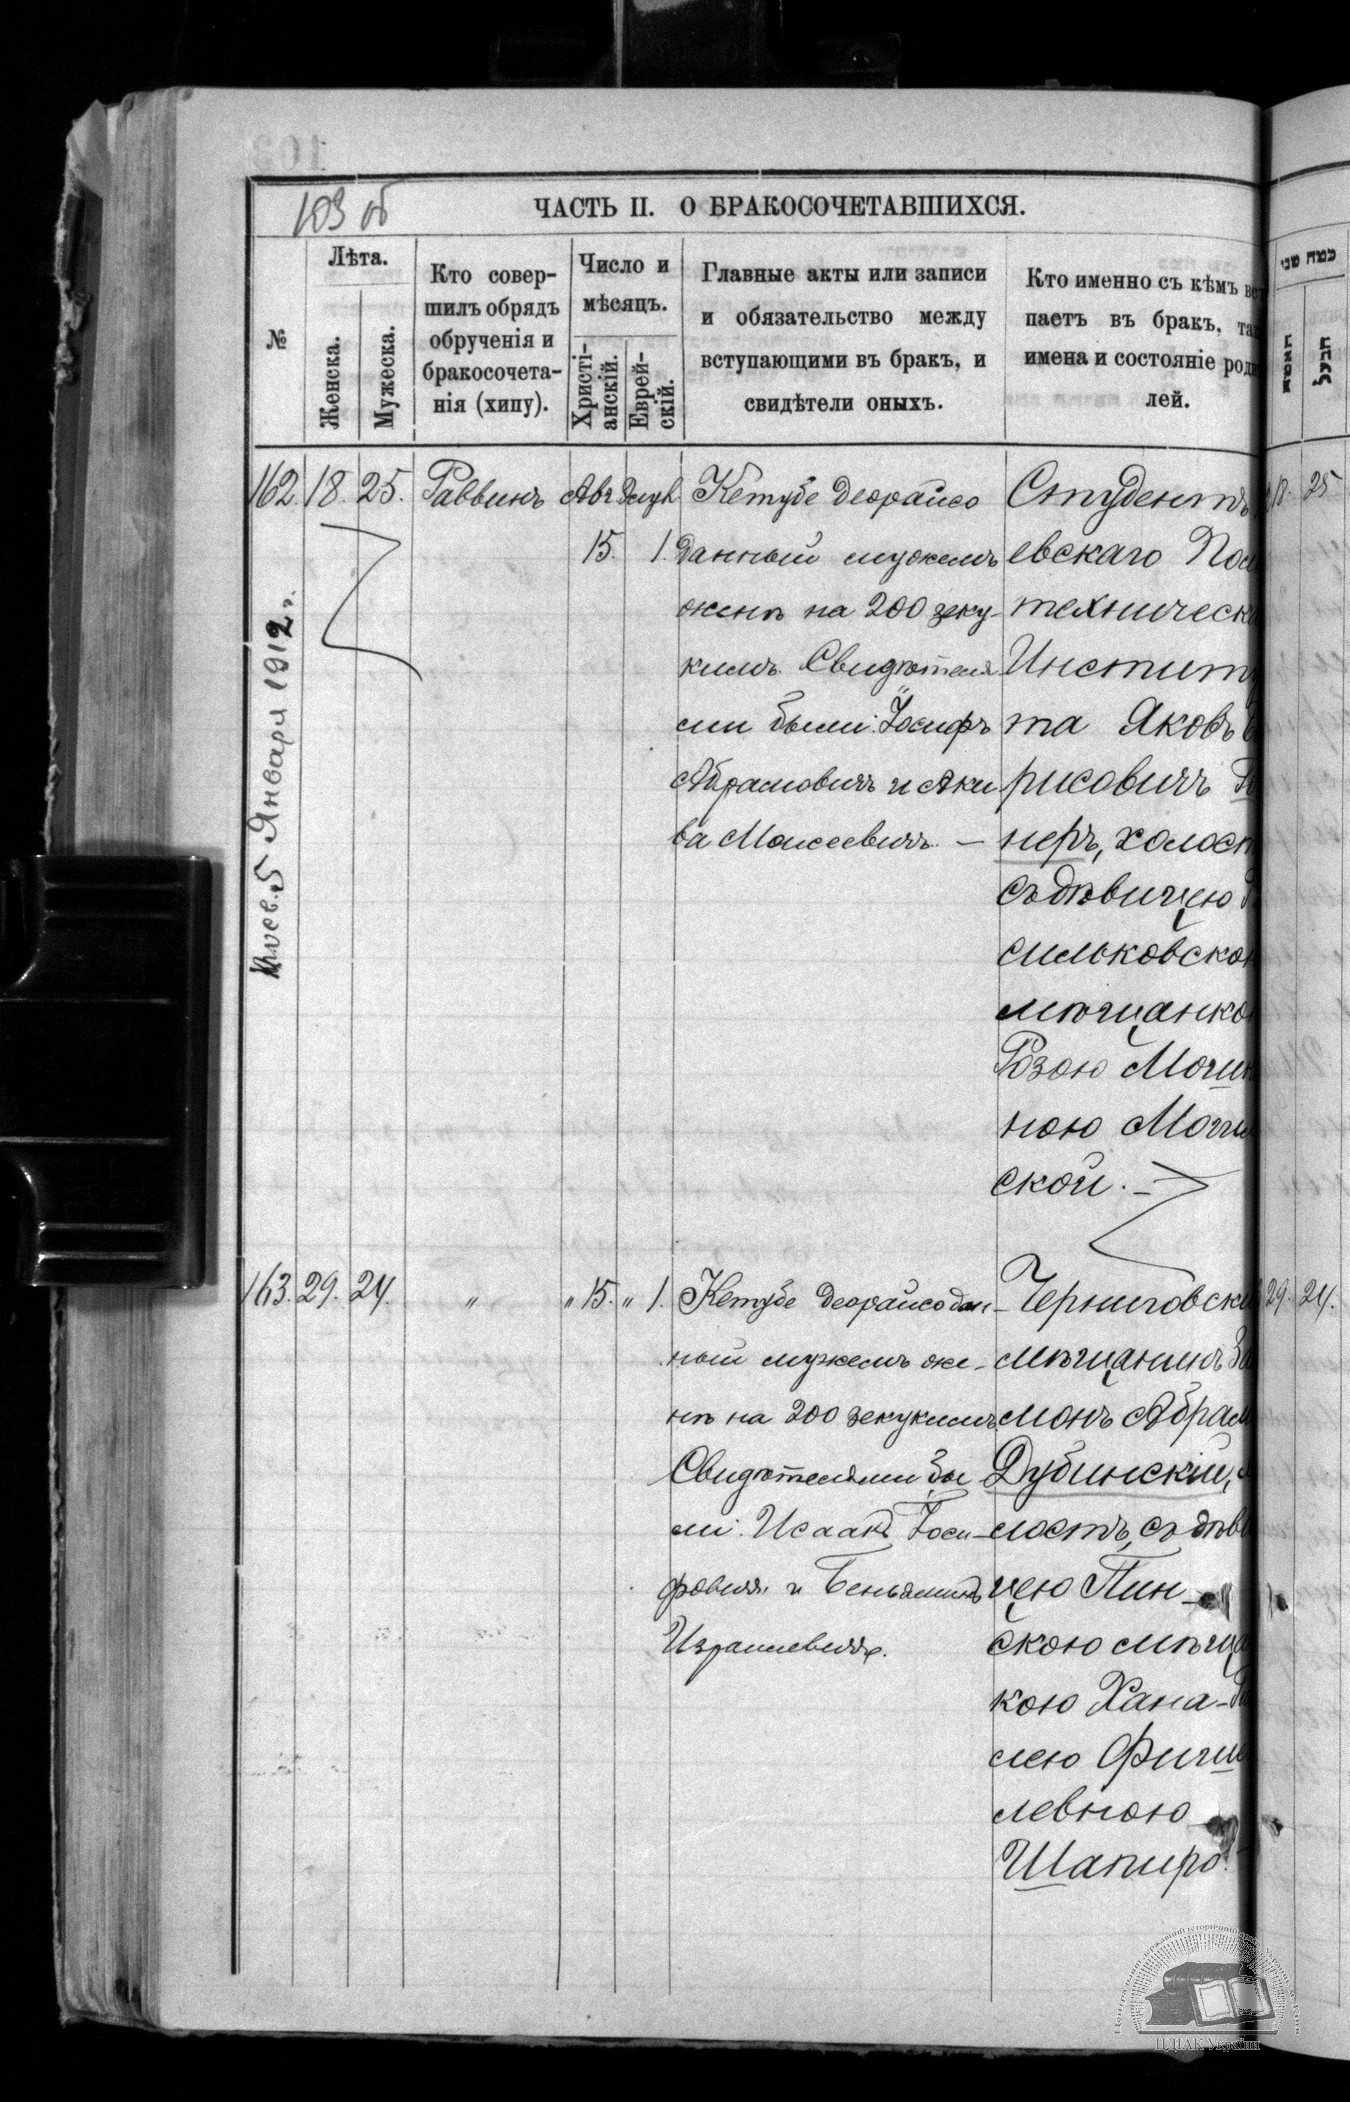 103 об
ЧАСТЬ II. О БРАКОСОЧЕТАВШИХСЯ.
№
Лѣта.
Женска.
Мужеска.
Кто совер-
шилъ обрядъ
обрученія и
бракосочета-
нія (хипу).
Число и
мѣсяцъ.
Христі-
анскій.
Еврей-
скій.
Главные акты или записи
и обязательство между
вступающими въ бракъ, и
свидѣтели оныхъ.
Кто именно съ кѣмъ
паетъ въ бракъ,
имена и состояніе
лей.
כמה שני
האשה
הבעל
162. 18. 25. Раввинъ Авг Элулъ
15. 1.
Кетубе деорайсо
данный мужемъ
женѣ на 200 зеку-
кимъ. Свидѣтеля
ми были: Іосифъ
Абрамовичъ и Аки
ва Моисеевичъ. —
Студентъ
евскаго
техническ
Институ
та Яковъ
рисовичъ
неръ, холост
съ дѣвицею
сильковско
мѣщанко
Розою
ною
ской. —
18. 25
5 Января 1912 г.
163. 29. 24. " " 15. " 1.
Кетубе деорайсо дан-
ный мужемъ же-
нѣ на 200 зекукимъ
Свидѣтелями бы
ли: Исаакъ Іоси-
фовичъ и Беньяминъ
Израилевичъ.
Черниговскі
мѣщанинъ За
монъ Абрам
Дубинскій,
лостъ, съ дѣв
цею Пин-
скою мѣща
кою Хана-
лею Фиши
левною
Шапиро.
29. 24.
ЦДІАК України